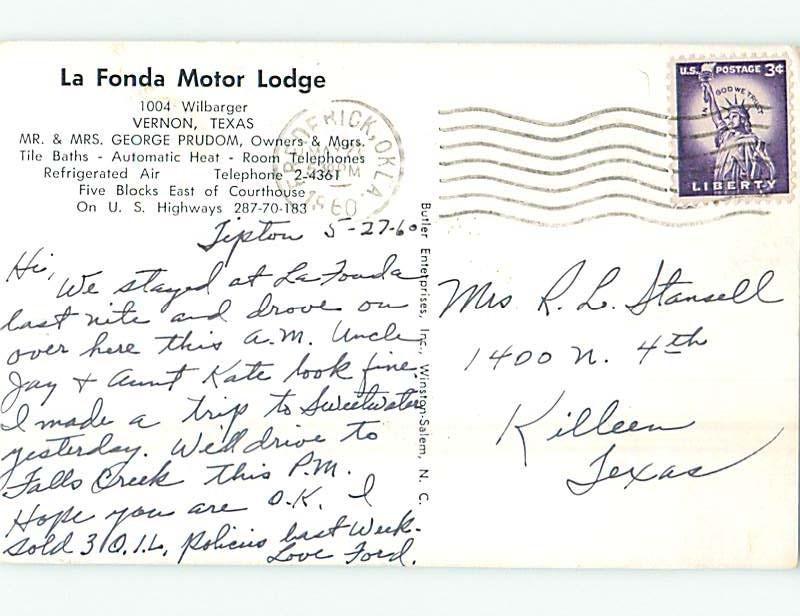 La Fonda Motor Lodge
1004 Wilbarger
VERNON, TEXAS
MR. & MRS. GEORGE PRUDOM, Owners & Mgrs.
Tile Baths - Automatic Heat - Room Telephones
Refrigerated Air Telephone 2-4361
Five Blocks East of Courthouse
On U. S. Highways 287-70-183
FREDERICK, OKLA.
PM
1960
U.S. POSTAGE 3¢
IN GOD WE TRUST
LIBERTY
Tipton 5-27-60
Hi,
We stayed at La Fonda
last nite and drove on
over here this a.m. Uncle
Jay & Aunt Kate look fine.
I made a trip to Sweetwater
yesterday. We'll drive to
Falls Creek this P.M.
Hope you are O.K. I
sold 3 O.I.L. Policies last Week.
Love Ford.
Butler Enterprises, Inc., Winston-Salem, N. C.
Mrs R. L. Stansell
1400 N. 4th
Killeen
Texas